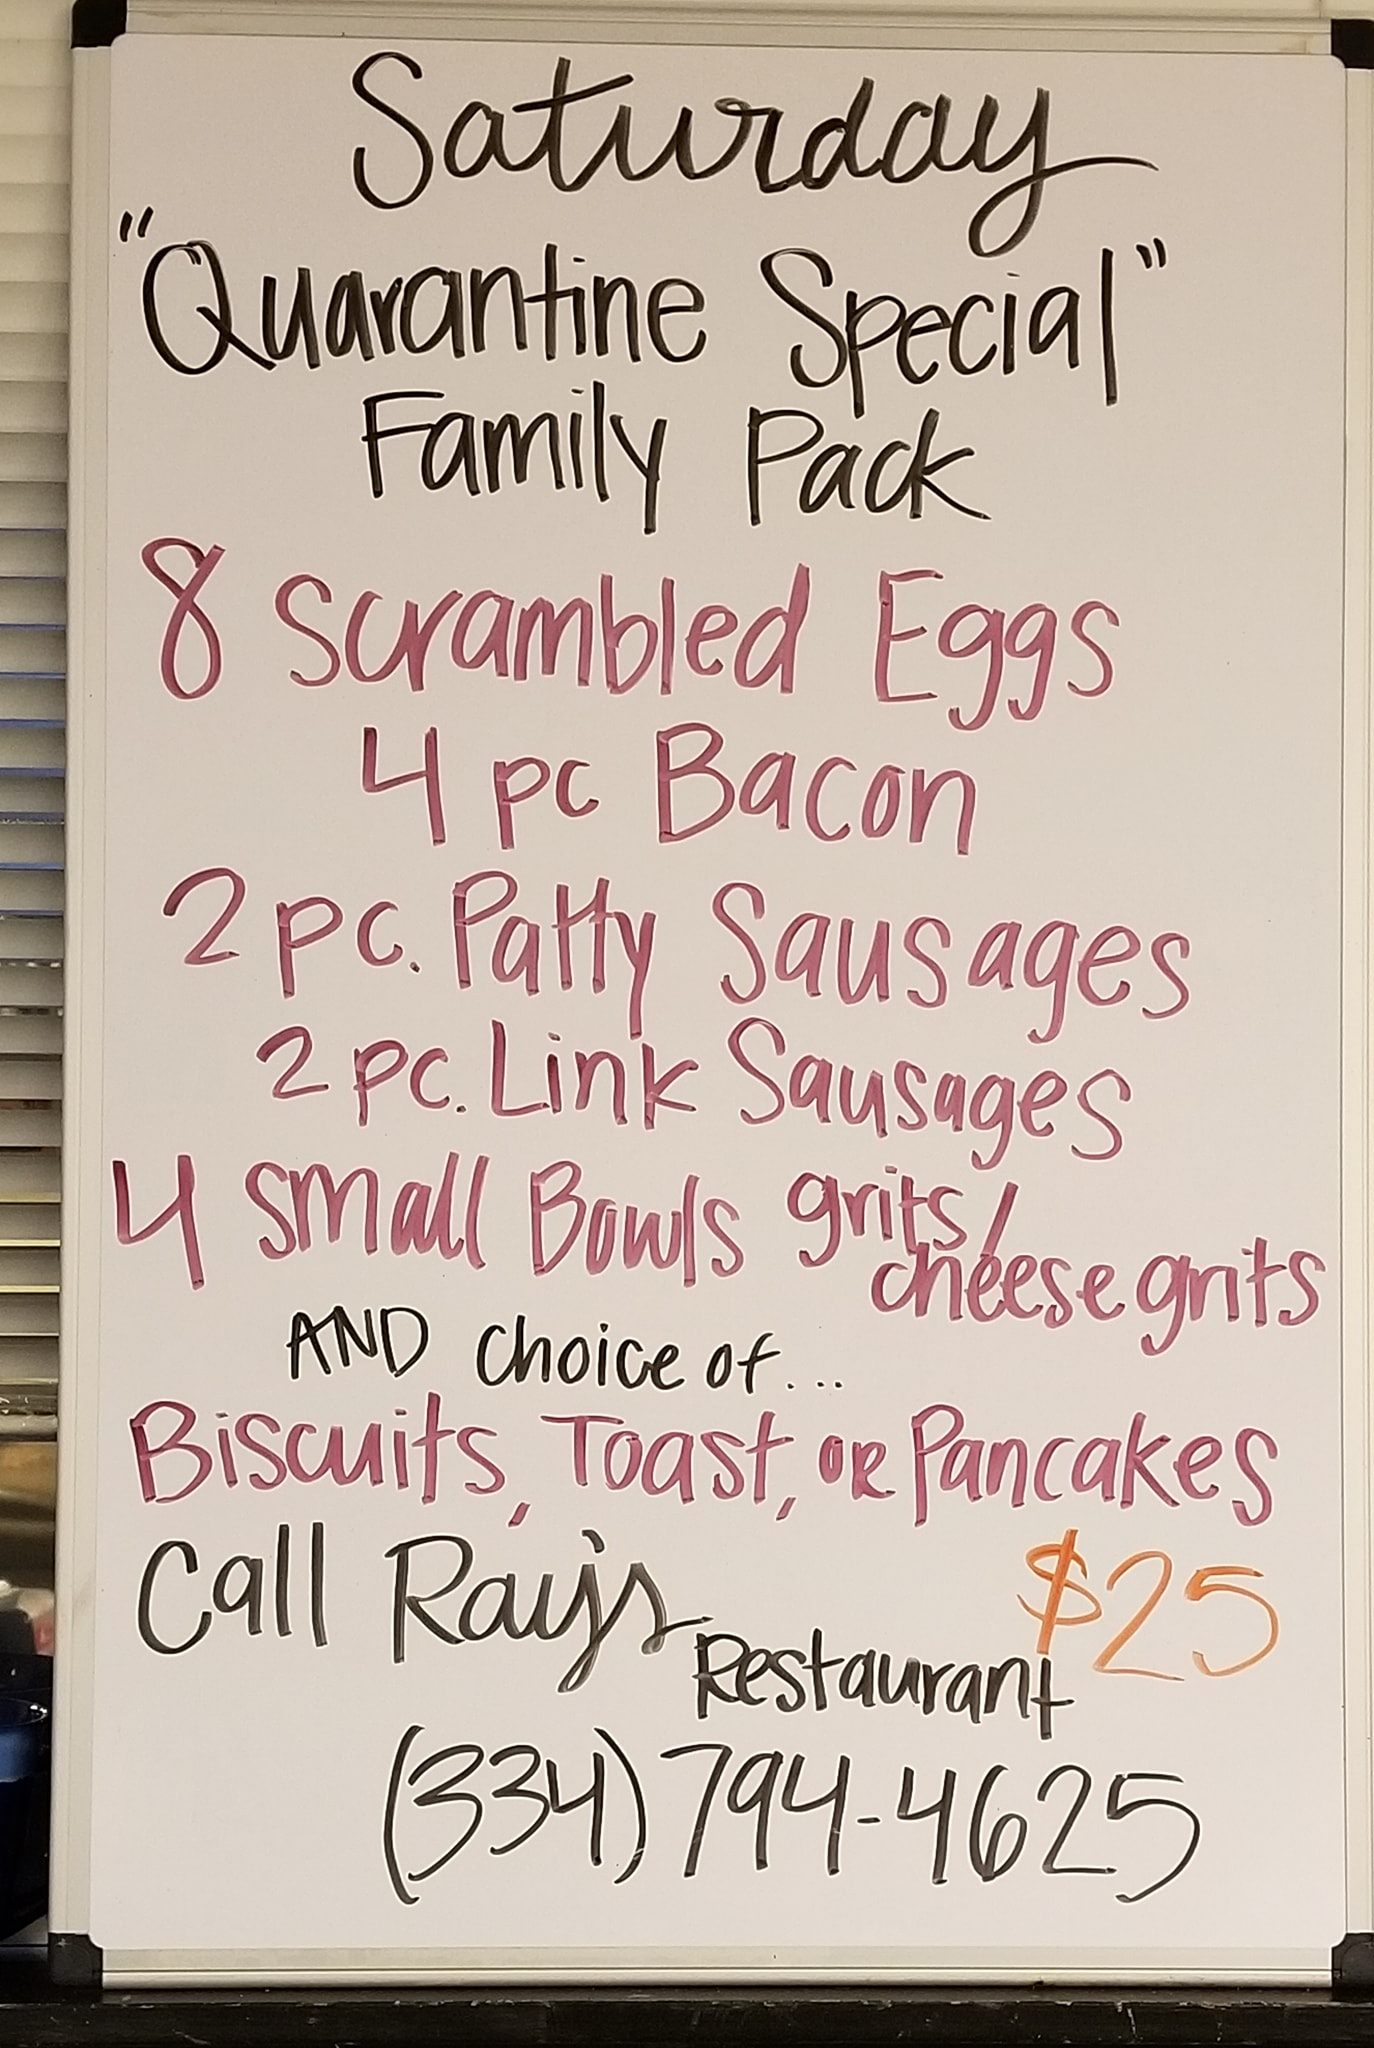 Saturday
"Quarantine Special"
Family Pack
8 Scrambled Eggs
4 pc Bacon
2 pc. Patty Sausages
2 pc. Link Sausages
4 small Bowls grits/
cheese grits
AND choice of...
Biscuits, Toast, or Pancakes
Call Ray's $25
Restaurant
(334) 794-4625